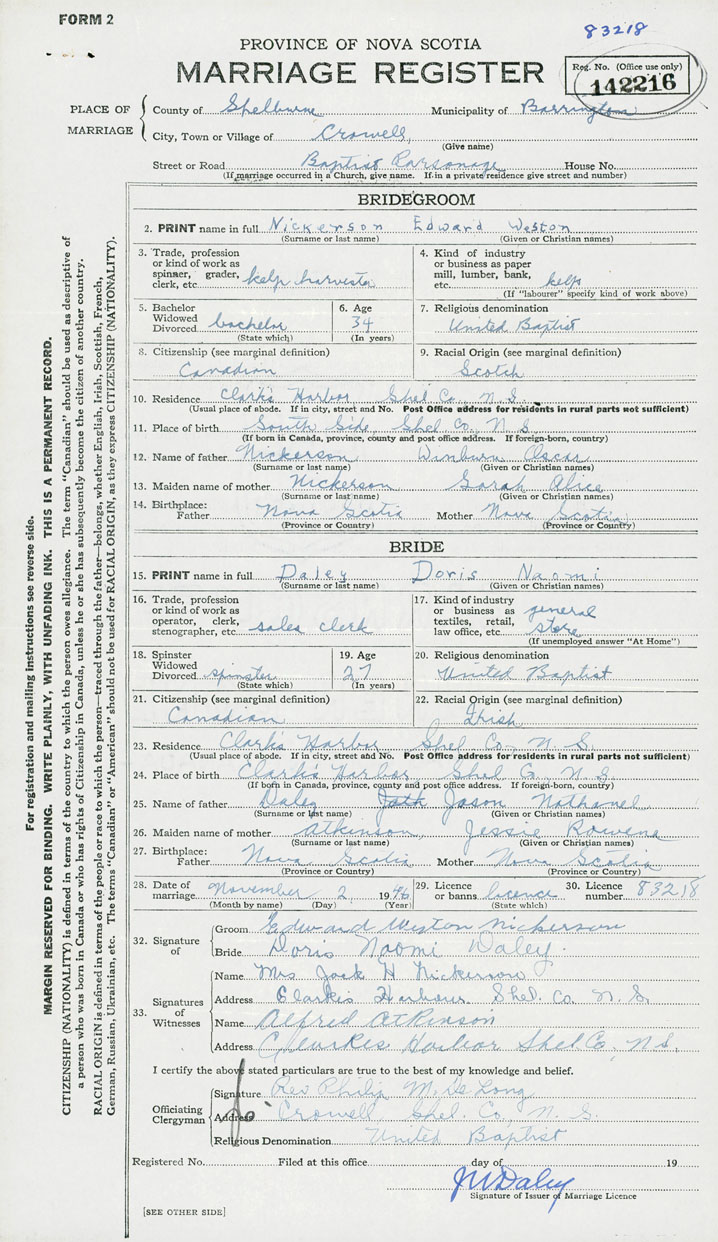 FORM 2
83218
PROVINCE OF NOVA SCOTIA
MARRIAGE REGISTER
Reg. No. (Office use only)
142216
PLACE OF MARRIAGE
County of Shelburne Municipality of Barrington
City, Town or Village of Crowell
(Give name)
Street or Road Baptist Parsonage House No.
(If marriage occurred in a Church, give name. If in a private residence give street and number)
BRIDEGROOM
2. PRINT name in full Nickerson Edward Weston
(Surname or last name) (Given or Christian names)
3. Trade, profession or kind of work as spinner, grader, clerk, etc. kelp harvester
4. Kind of industry or business as paper mill, lumber, bank, etc. kelp
(If "labourer" specify kind of work above)
5. Bachelor Widowed Divorced bachelor
(State which)
6. Age 34
(In years)
7. Religious denomination
United Baptist
8. Citizenship (see marginal definition)
Canadian
9. Racial Origin (see marginal definition)
Scotch
10. Residence Clark's Harbor Shel Co., N.S.
(Usual place of abode. If in city, street and No. Post Office address for residents in rural parts not sufficient)
11. Place of birth South Side, Shel Co., N.S.
(If born in Canada, province, county and post office address. If foreign-born, country)
12. Name of father Nickerson Winburn Oscar
(Surname or last name) (Given or Christian names)
13. Maiden name of mother Nickerson Sarah Alice
(Surname or last name) (Given or Christian names)
14. Birthplace: Father Nova Scotia Mother Nova Scotia
(Province or Country) (Province or Country)
BRIDE
15. PRINT name in full Daley Doris Naomi
(Surname or last name) (Given or Christian names)
16. Trade, profession or kind of work as operator, clerk, stenographer, etc. sales clerk
17. Kind of industry or business as textiles, retail, law office, etc. general store
(If unemployed answer "At Home")
18. Spinster Widowed Divorced spinster
(State which)
19. Age 27
(In years)
20. Religious denomination
United Baptist
21. Citizenship (see marginal definition)
Canadian
22. Racial Origin (see marginal definition)
Irish
23. Residence Clark's Harbor Shel Co., N.S.
(Usual place of abode. If in city, street and No. Post Office address for residents in rural parts not sufficient)
24. Place of birth Clark's Harbor Shel Co., N.S.
(If born in Canada, province, county and post office address. If foreign-born, country)
25. Name of father Daley Jason Nathanel
(Surname or last name) (Given or Christian names)
26. Maiden name of mother Atkinson, Jessie Rowena
(Surname or last name) (Given or Christian names)
27. Birthplace: Father Nova Scotia Mother Nova Scotia
(Province or Country) (Province or Country)
28. Date of marriage November 2, 1946
(Month by name) (Day) (Year)
29. Licence or banns licence
(State which)
30. Licence number 83218
32. Signature of
Groom Edward Weston Nickerson
Bride Doris Naomi Daley.
33. Signatures of Witnesses
Name Mrs Jack H Nickerson
Address Clarkis Harbour Shel. Co. N.S.
Name Alfred Atkinson
Address Clarkes Harbor Shel Co, N.S.
I certify the above stated particulars are true to the best of my knowledge and belief.
Officiating Clergyman
Signature Rev Philip M. De Long
Address Crowell Shel. Co., N.S.
Religious Denomination United Baptist
Registered No. Filed at this office day of 19
J W Daley
Signature of Issuer of Marriage Licence
[SEE OTHER SIDE]
For registration and mailing instructions see reverse side.
MARGIN RESERVED FOR BINDING. WRITE PLAINLY, WITH UNFADING INK. THIS IS A PERMANENT RECORD.
CITIZENSHIP (NATIONALITY) is defined in terms of the country to which the person owes allegiance. The term "Canadian" should be used as descriptive of
a person who was born in Canada or who has rights of Citizenship in Canada, unless he or she has subsequently become the citizen of another country.
RACIAL ORIGIN is defined in terms of the people or race to which the person—traced through the father—belongs, whether English, Irish, Scottish, French,
German, Russian, Ukrainian, etc. The terms "Canadian" or "American" should not be used for RACIAL ORIGIN, as they express CITIZENSHIP (NATIONALITY).